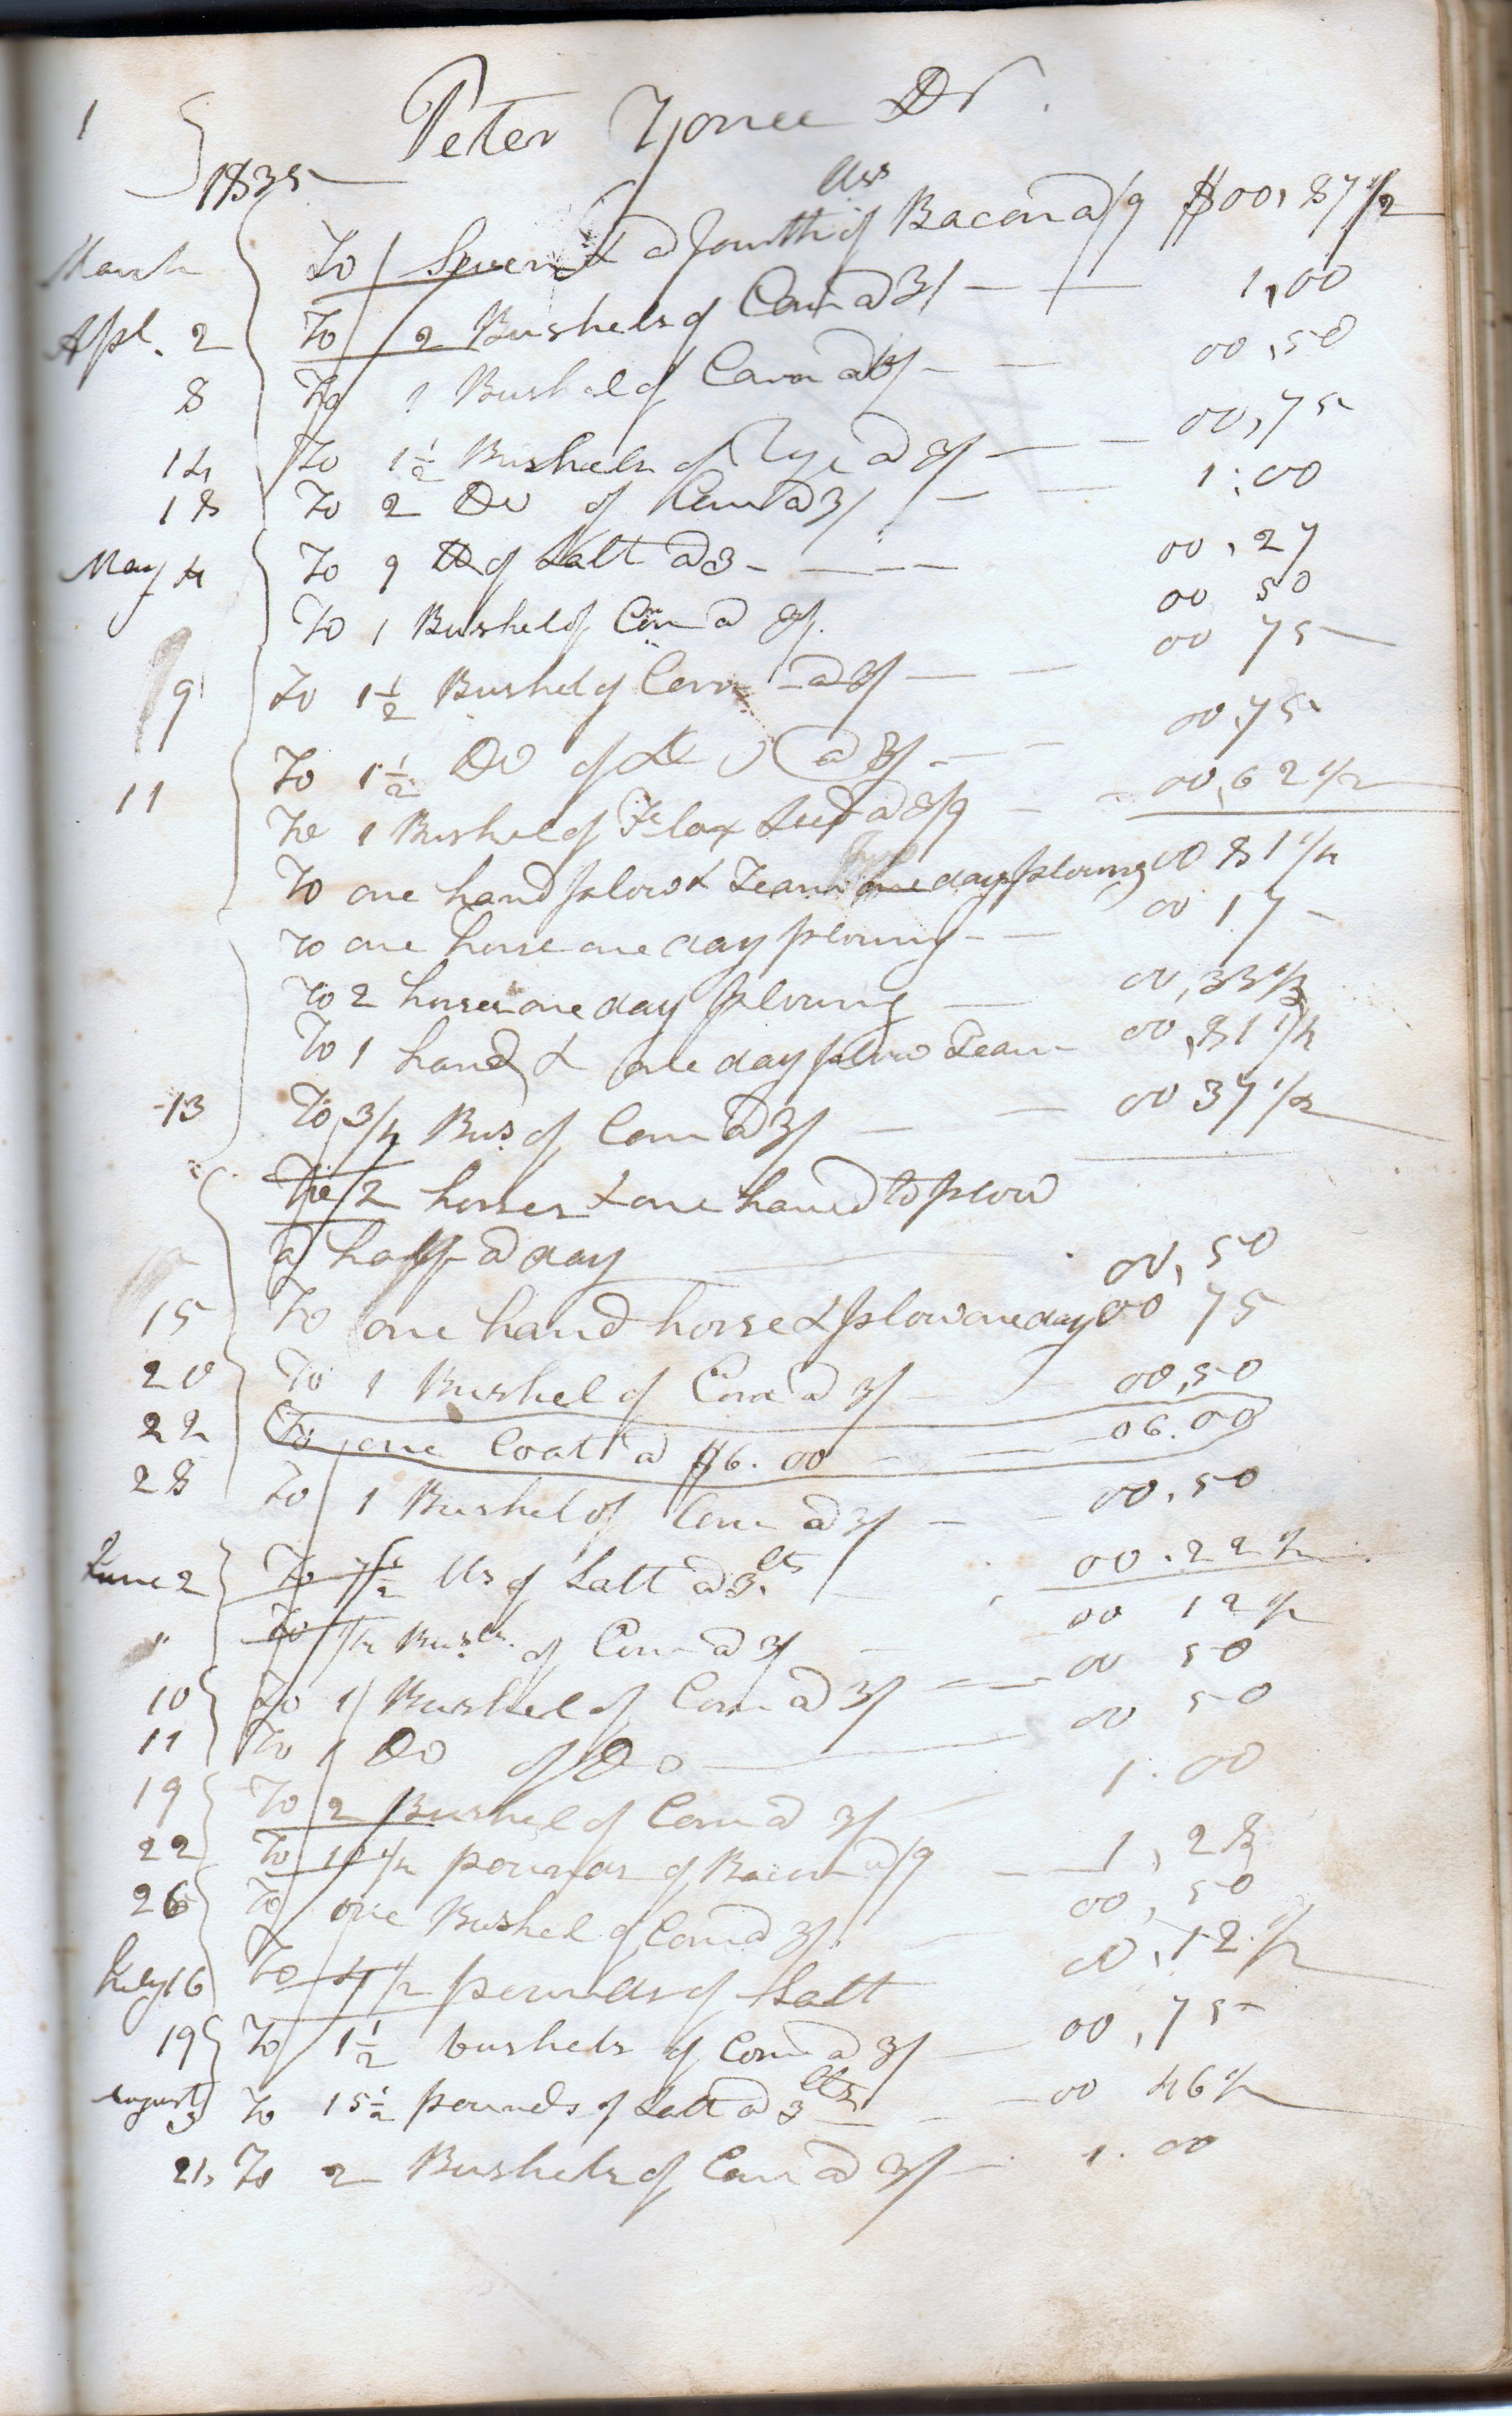 1
Peter Yonce Dr.
1835
lbs
March To Seven & a fourth of Bacon a /9 $00,87 1/2
Apl. 2 To 2 Bushels of Corn a 3/ 1,00
8 To 1 Bushel of Corn a 3/ 00,50
14 To 1 1/2 Bushels of Rye a 3/ 00,75
18 To 2 Do of Corn a 3/ 1:00
May 4 To 9 lb of Salt a 3 00,27
To 1 Bushel of Corn a 3/ 00 50
9 To 1 1/2 Bushel of Corn a 3/ 00 75
To 1 1/2 Do of Do a 3/ 00,75
11 To 1 Bushel of Flax Seed a 3/9 00,62 1/2
To one hand plow & Team one day plouing 00 81 1/4
to one horse one day plouing 00 17
to 2 horses one day plouing 00,33 1/3
To 1 hand & one day plow Team 00,81 1/4
13 To 3/4 Bus of Corn a 3/ 00 37 1/2
To 2 horses & one hand to plow
a half a day 00,50
15 To one hand horse & plow one day 00 75
20 To 1 Bushel of Corn a 3/ 00,50
22 To one Coat a $6.00 06.00
28 To 1 Bushel of Corn a 3/ 00,50
June 2 To 7 1/2 lbs of Salt a 3 cts 00.22 1/2
" To 1/4 Bush. of Corn a 3/ 00 12 1/2
10 To 1 Bushel of Corn a 3/ 00 50
11 To 1 Do of Do 00 50
19 To 2 Bushel of Corn a 3/ 1.00
22 To 10 1/4 pounds of Bacon a /9 1,28
26 To one Bushel of Corn a 3/ 00,50
July 16 To 4 1/2 pounds of Salt 00,12 1/2
19 To 1 1/2 bushels of Corn a 3/ 00,75
August 3 To 15 1/2 pounds of Salt a 3 cts 00 46 1/2
21 To 2 Bushels of Corn a 3/ 1.00